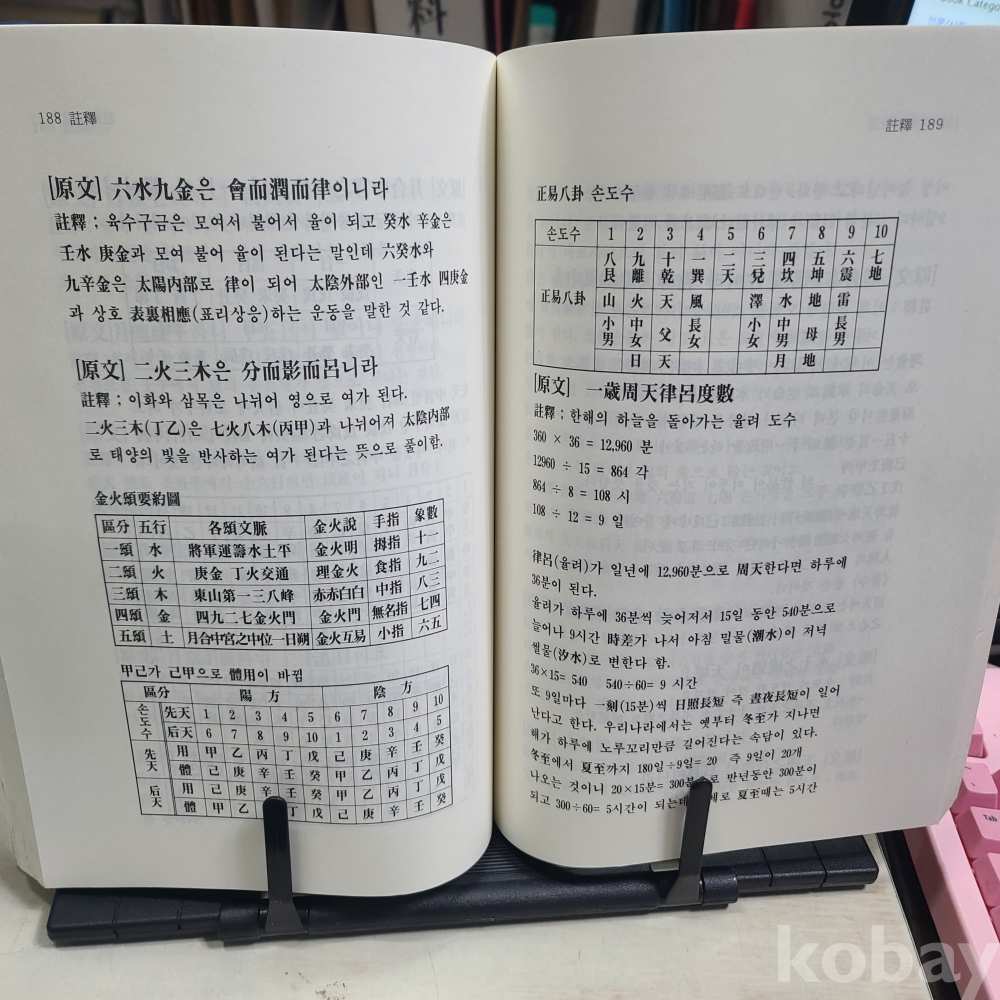 188 註釋
[原文] 六水九金은 會而潤而律이니라
註釋 ; 육수구금은 모여서 불어서 율이 되고 癸水 辛金은
壬水 庚金과 모여 불어 율이 된다는 말인데 六癸水와
九辛金은 太陽内部로 律이 되어 太陰外部인 一壬水 四庚金
과 상호 表裏相應(표리상응)하는 운동을 말한 것 같다.
[原文] 二火三木은 分而影而呂니라
註釋 ; 이화와 삼목은 나뉘어 영으로 여가 된다.
二火三木(丁乙)은 七火八木(丙甲)과 나뉘어져 太陰内部
로 태양의 빛을 반사하는 여가 된다는 뜻으로 풀이함.
金火頌要約圖
區分 五行 各頌文脈 金火說 手指 象數
一頌 水 將軍運籌水土平 金火明 拇指 十一
二頌 火 庚金 丁火交通 理金火 食指 九二
三頌 木 東山第一三八峰 赤赤白白 中指 八三
四頌 金 四九二七金火門 金火門 無名指 七四
五頌 土 月合中宮之中位一日朔 金火互易 小指 六五
甲己가 己甲으로 體用이 바뀜
區分 陽 方 陰 方
손도수 先天 1 2 3 4 5 6 7 8 9 10
后天 6 7 8 9 10 1 2 3 4 5
先天 用 甲 乙 丙 丁 戊 己 庚 辛 壬 癸
體 己 庚 辛 壬 癸 甲 乙 丙 丁 戊
后天 用 己 庚 辛 壬 癸 甲 乙 丙 丁 戊
體 甲 乙 丁 戊 己 庚 辛 壬 癸
註釋 189
正易八卦 손도수
손도수 1 2 3 4 5 6 7 8 9 10
正易八卦 八艮 九離 十乾 巽 二天 三兌 四坎 五坤 六震 七地
山 火 天 風 澤 水 地 雷
小男 中女 父 長女 小女 中男 母 長男
日 天 月 地
[原文] 一歲周天律呂度數
註釋 ; 한해의 하늘을 돌아가는 율려 도수
360 × 36 = 12,960 분
12960 ÷ 15 = 864 각
864 ÷ 8 = 108 시
108 ÷ 12 = 9 일
律呂(율려)가 일년에 12,960분으로 周天한다면 하루에
36분이 된다.
율려가 하루에 36분씩 늦어져서 15일 동안 540분으로
늘어나 9시간 時差가 나서 아침 밀물(潮水)이 저녁
썰물(汐水)로 변한다 함.
36×15= 540 540÷60= 9 시간
또 9일마다 一刻(15분)씩 日照長短 즉 晝夜長短이 일어
난다고 한다. 우리나라에서는 옛부터 冬至가 지나면
해가 하루에 노루꼬리만큼 길어진다는 속담이 있다.
冬至에서 夏至까지 180일÷9일= 20 즉 9일이 20개
나오는 것이니 20×15분= 300분 로 반년동안 300분이
되고 300÷60= 5시간이 되는데 로 夏至때는 5시간
Book Categor
Tab
kobay